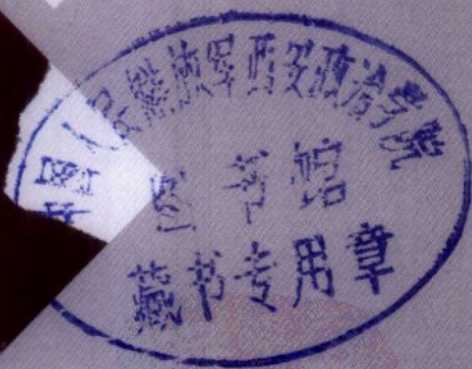 中国人民解放军西安政治学院
图书馆
藏书专用章